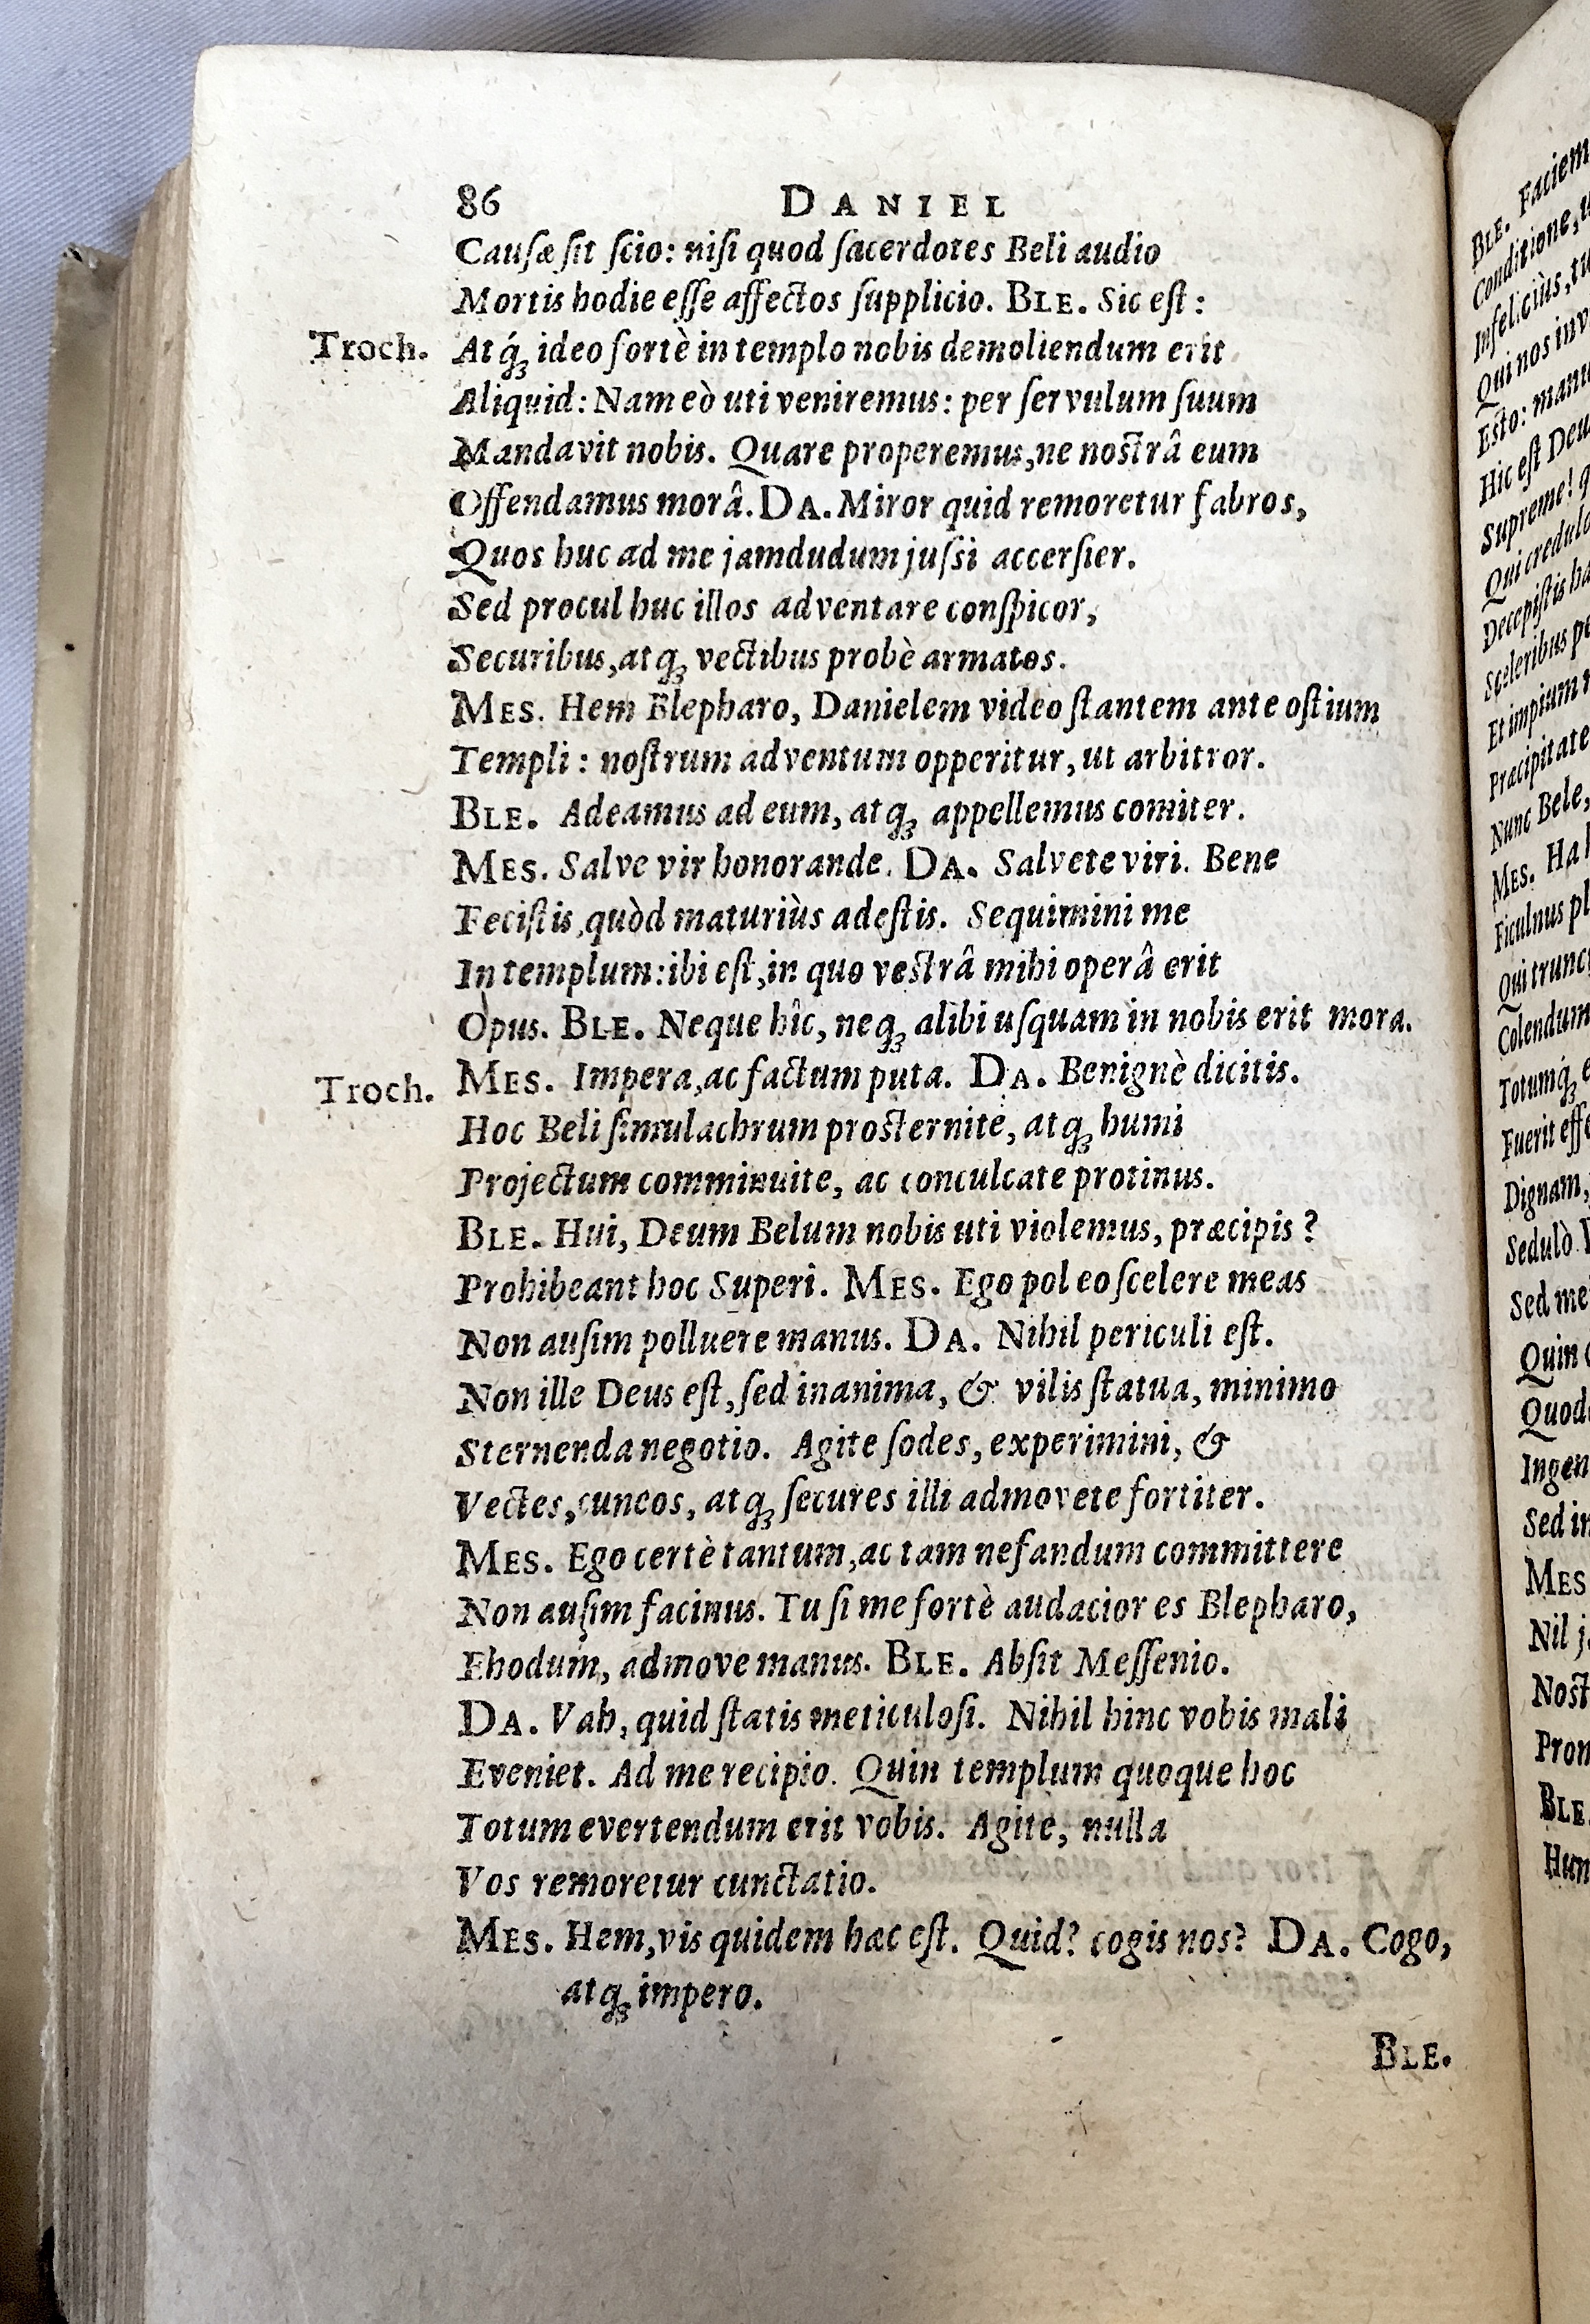 86 DANIEL
Causæ sit scio: nisi quod sacerdotes Beli audio
Mortis hodie esse affectos supplicio. BLE. Sic est:
Troch. Atq́ꝫ ideo fortè in templo nobis demoliendum erit
Aliquid: Nam eò uti veniremus: per servulum suum
Mandavit nobis. Quare properemus, ne nostrâ eum
Offendamus morâ. DA. Miror quid remoretur fabros,
Quos huc ad me jamdudum jussi accersier.
Sed procul huc illos adventare conspicor,
Securibus, atqꝫ vectibus probè armatos.
MES. Hem Blepharo, Danielem video stantem ante ostium
Templi: nostrum adventum opperitur, ut arbitror.
BLE. Adeamus ad eum, atqꝫ appellemus comiter.
MES. Salve vir honorande. DA. Salvete viri. Bene
Fecistis, quòd maturiùs adestis. Sequimini me
In templum: ibi est, in quo vestrâ mihi operâ erit
Opus. BLE. Neque hîc, neqꝫ alibi usquam in nobis erit mora.
Troch. MES. Impera, ac factum puta. DA. Benignè dicitis.
Hoc Beli simulachrum prosternite, atqꝫ humi
Projectum comminuite, ac conculcate protinus.
BLE. Hui, Deum Belum nobis uti violemus, præcipis?
Prohibeant hoc Superi. MES. Ego pol eo scelere meas
Non ausim polluere manus. DA. Nihil periculi est.
Non ille Deus est, sed inanima, & vilis statua, minimo
Sternenda negotio. Agite sodes, experimini, &
Vectes, cuneos, atqꝫ secures illi admovete fortiter.
MES. Ego certè tantum, ac tam nefandum committere
Non ausim facinus. Tu si me fortè audacior es Blepharo,
Ehodum, admove manus. BLE. Absit Messenio.
DA. Vah, quid statis meticulosi. Nihil hinc vobis mali
Eveniet. Ad me recipio. Quin templum quoque hoc
Totum evertendum erit vobis. Agite, nulla
Vos remoretur cunctatio.
MES. Hem, vis quidem hæc est. Quid? cogis nos? DA. Cogo,
atqꝫ impero.
BLE.
BLE. Faciem
Conditione,
Infeliciùs, tu
Qui nos inv
Esto: manu
Hic est Deu
Supreme! q
Qui credulo
Decepistis ha
Sceleribus pe
Et impium
Præcipitate
Nunc Bele,
MES. Ha h
Ficulnus pl
Qui trunc
Colendum
Totumq́ꝫ e
Fuerit esse
Dignam,
Sedulò.
Sed me
Quin
Quod
Ingen
Sed in
MES
Nil j
Nost
Pron
BLE.
Hun